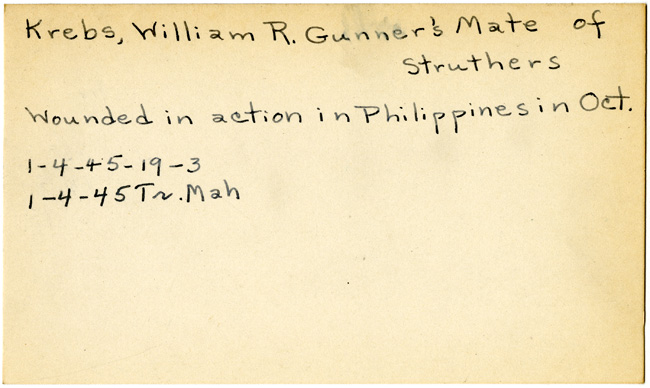 Krebs, William R. Gunner's Mate of
Struthers
Wounded in action in Philippines in Oct.
1-4-45-19-3
1-4-45 Tr. Mah